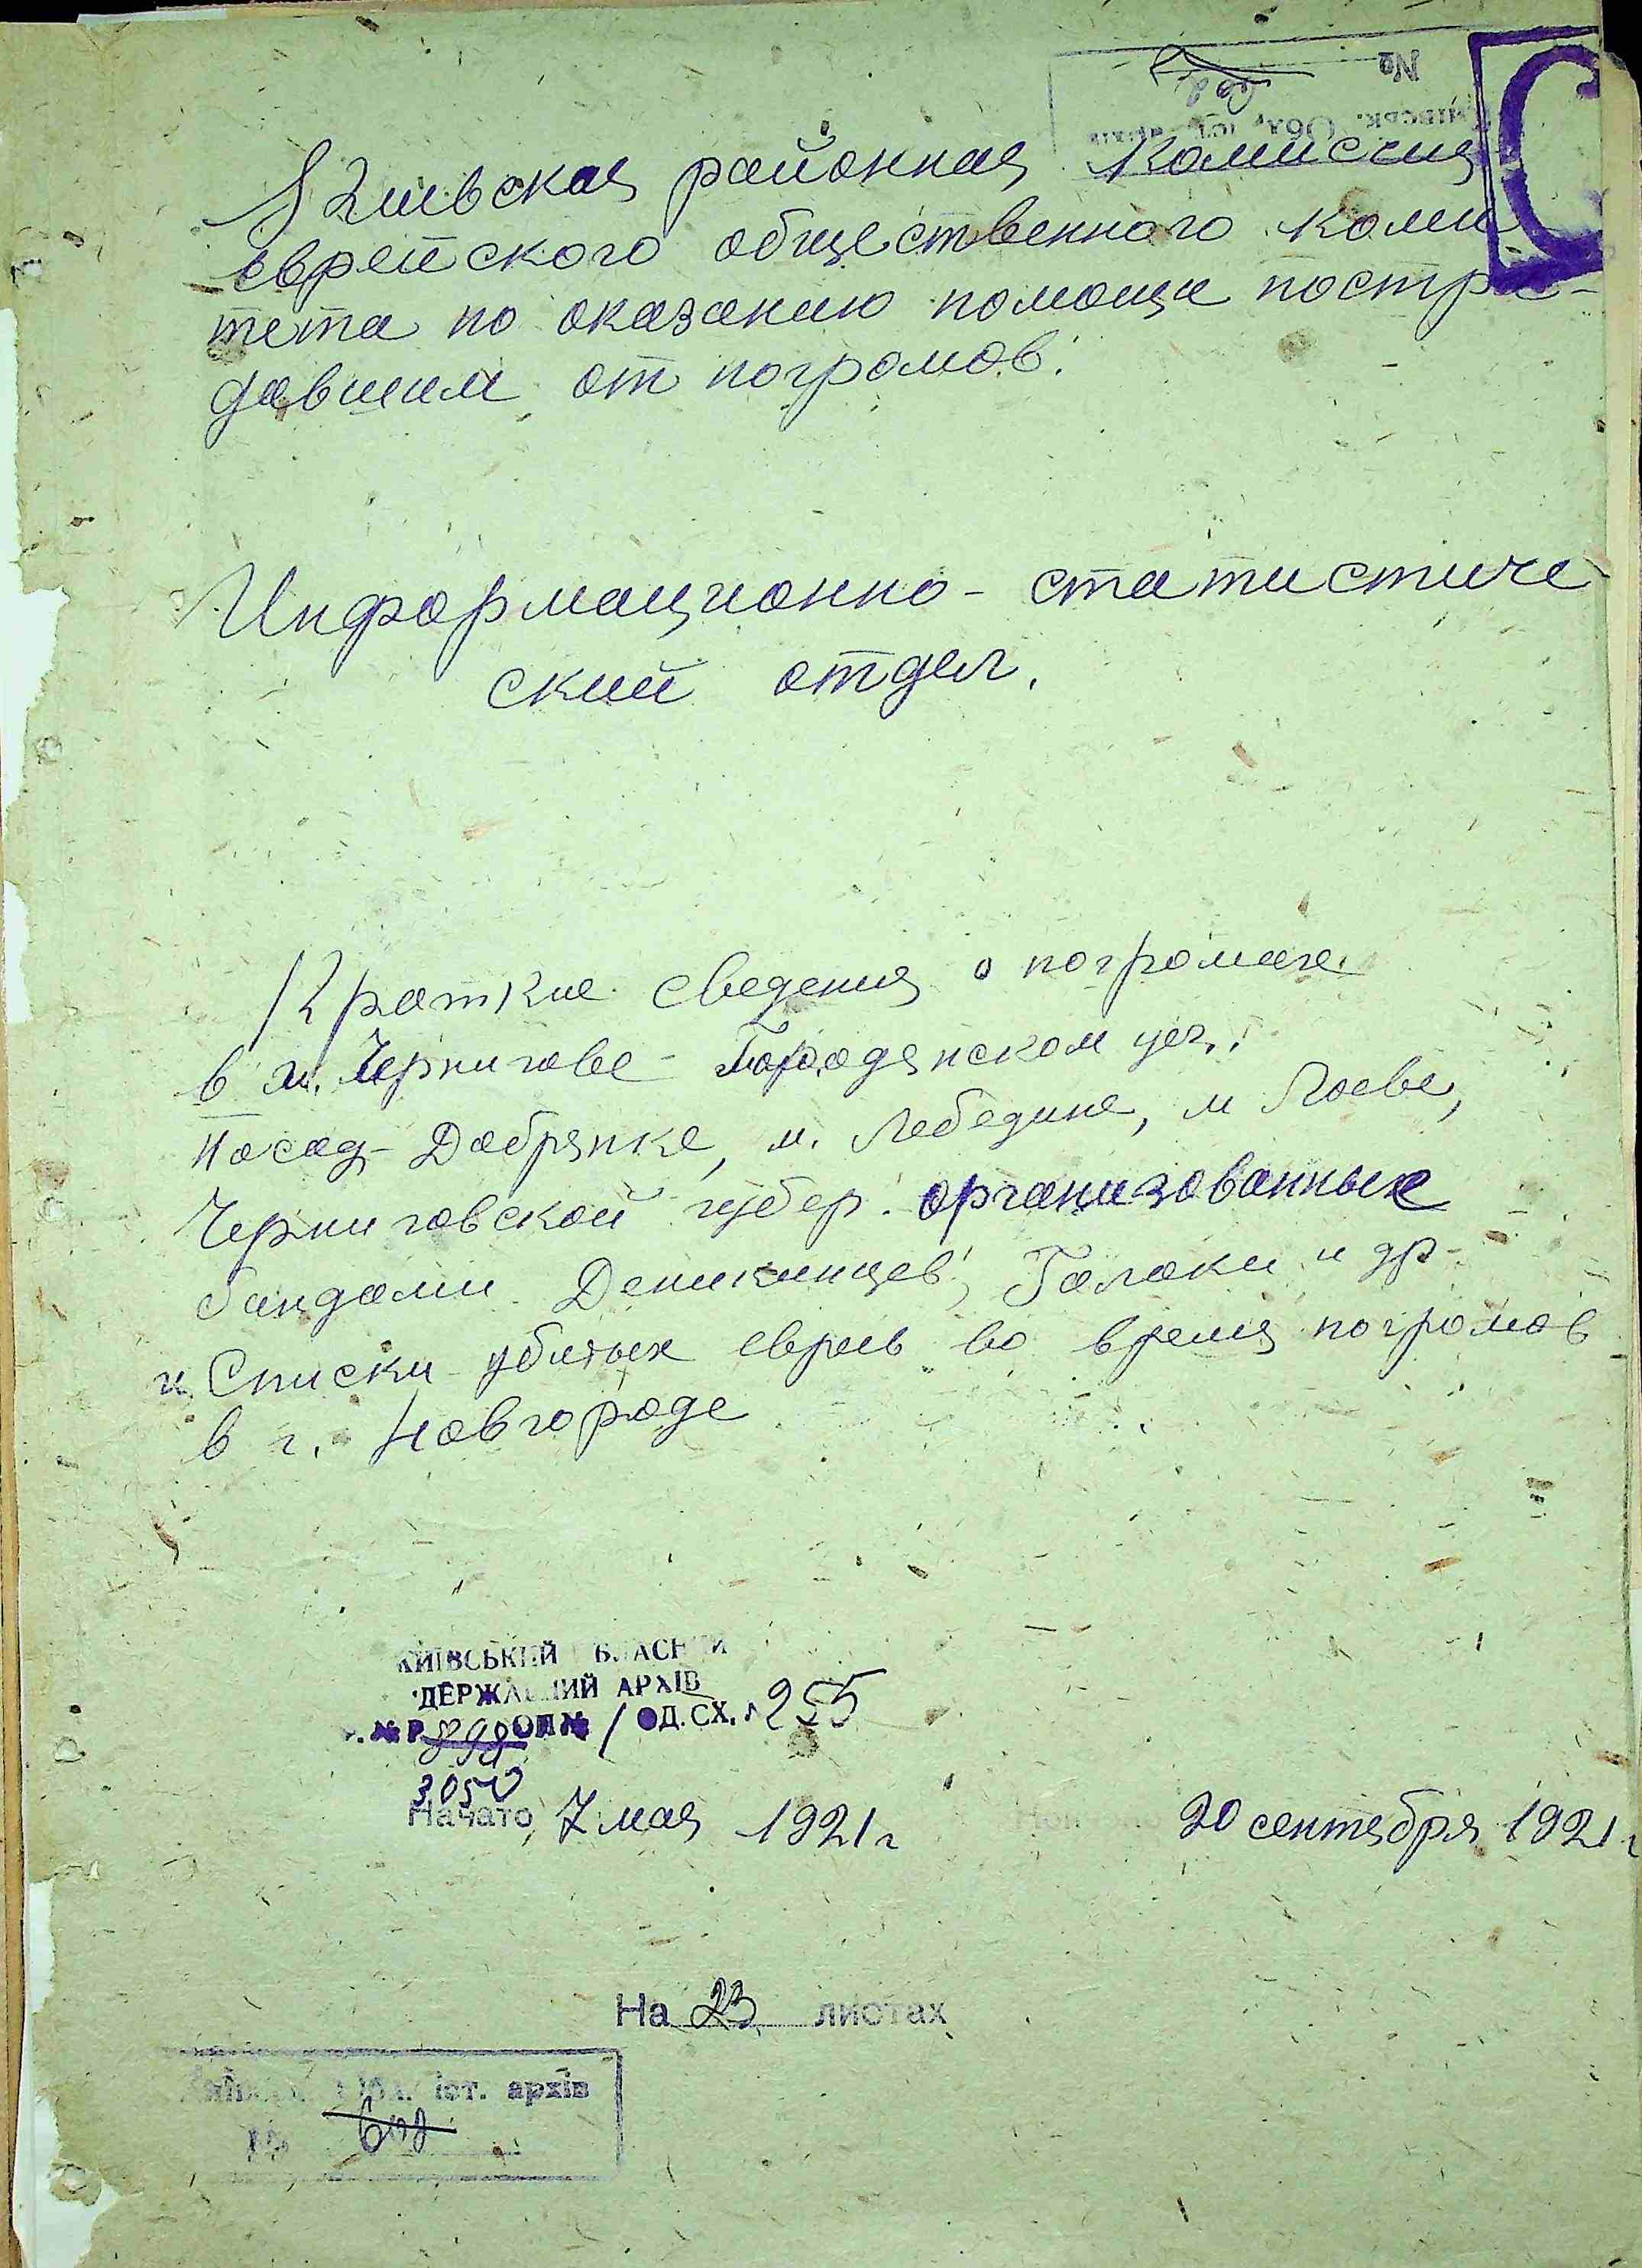 №
Київськ. Обл. іст. архів
С
Киевская районная комиссия
еврейского общественного коми
тета по оказанию помощи постра-
давшим от погромов.
Информационно-статистиче
ский отдел.
Краткие сведения о погромах
в м. Чернигове - Городянском уез.,
Посад-Добрянке, м. Лебедине, м Лоеве,
Черниговской губер. организованные
бандами Деникинцев, Галаки и др-
и Списки убитых евреев во время погромов
в г. Новгороде
КИЇВСЬКИЙ ОБЛАСНИЙ
ДЕРЖАВНИЙ АРХІВ
№ Р 898 ОП № 1 ОД. СХ. № 255
3050
Начато 7 мая 1921 г
20 сентября 1921 г
На 23 листах
іст. архів